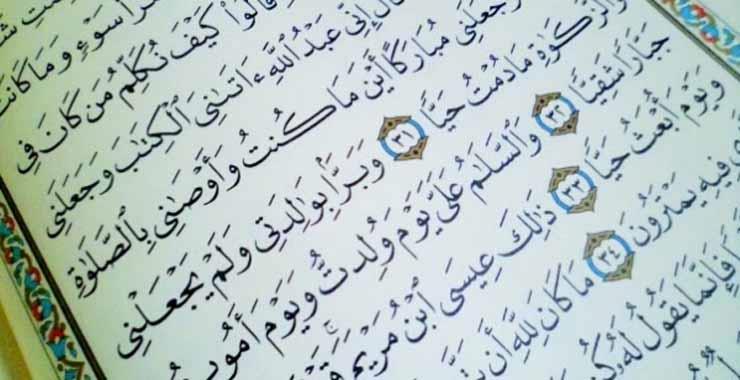 سَوْءٍ وَمَا كَانَتْ
قَالُوا۟ كَيْفَ نُكَلِّمُ مَن كَانَ فِى
إِنِّى عَبْدُ ٱللَّهِ ءَاتَىٰنِىَ ٱلْكِتَٰبَ وَجَعَلَنِى
وَجَعَلَنِى مُبَارَكًا أَيْنَ مَا كُنتُ وَأَوْصَٰنِى بِٱلصَّلَوٰةِ
وَٱلزَّكَوٰةِ مَا دُمْتُ حَيًّا ٣١ وَبَرًّۢا بِوَٰلِدَتِى وَلَمْ يَجْعَلْنِى
جَبَّارًا شَقِيًّا ٣٢ وَٱلسَّلَٰمُ عَلَىَّ يَوْمَ وُلِدتُّ وَيَوْمَ أَمُوتُ
وَيَوْمَ أُبْعَثُ حَيًّا ٣٣ ذَٰلِكَ عِيسَى ٱبْنُ مَرْيَمَ
فِيهِ يَمْتَرُونَ ٣٤ مَا كَانَ لِلَّهِ أَن
فَإِنَّمَا يَقُولُ لَهُۥ كُن